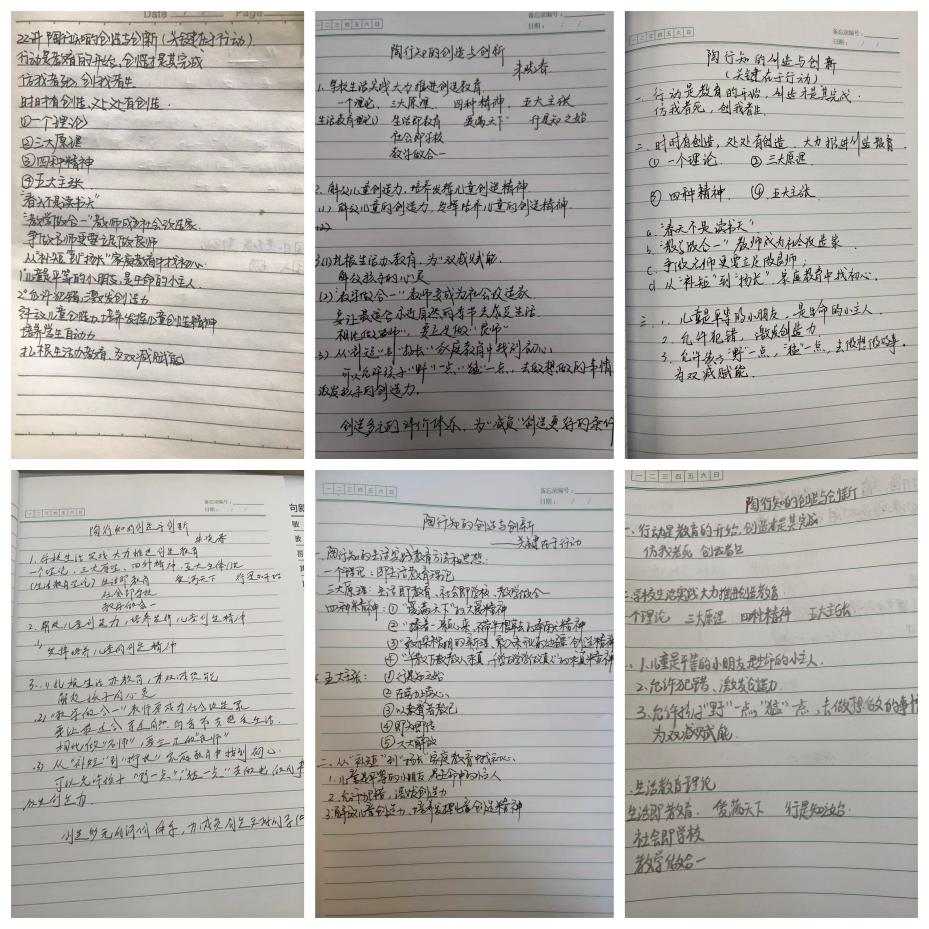 Date / / Page
22讲 陶行知的创造与创新(关键在于行动)
行动是教育的开始,创造才是其完成
仿我者死,创我者生
时时有创造,处处有创造.
①一个理论
②三大原理
③四种精神
④五大主张
"春天不是读书天"
"教学做合一"教师成为社会改造家.
争做名师更要立足做良师
从"补短"到"扬长"家庭教育中找初心.
1儿童是平等的小朋友,是生命的小主人
2允许犯错,激发创造力
3解放儿童创造力,培养发挥儿童创造精神
培养学生自动力
扎根生活办教育,为双减赋能
一二三四五六日
备忘录编号:
日期: / /
陶行知的创造与创新
朱晓春
1.学校生活实践大力推进创造教育.
一个理论、三大原理、四种精神、五大主张
生活教育理论) 生活即教育 爱满天下 行是知之始
社会即学校
教学做合一
2.解放儿童创造力,培养发挥儿童创造精神
(1)解放儿童的创造力,发挥培养儿童的创造精神.
(2)
3.(1)扎根生活办教育,为"双减"赋能.
解放孩子的心灵
(2)"教学做合一"教师要成为社会改造家
要让最适合水边自然的香节去感受生活
相比做"名师",要立足做"良师"
3)从"补短"到"扬长"家庭教育中找到初心
可以允许孩子"野"一点"猛"一点,去做想做的事情
激发孩子的创造力.
创造多元的评价体系,为"减负"创造更好的条件
一二三四五六日
备忘录编号:
日期: / /
陶行知的创造与创新
(关键在于行动)
一、行动是教育的开始,创造才是其完成
仿我者死,创我者生
二、时时有创造,处处有创造.大力推进创造教育
① 一个理论. ② 三大原理
③ 四种精神 ④ 五大主张
a."春天不是读书天"
b."教学做合一"教师成为社会改造家
c.争做名师更要立足做良师
d.从"补短"到"扬长"家庭教育中找初心.
三、1.儿童是平等的小朋友,是生命的小主人.
2.允许犯错,激发创造力
3.允许孩子"野"一点,"猛"一点,去做想做的事.
为双减赋能.
一二三四五六日
备忘录编号:
日期: / /
陶行知的创造与创新
朱晓春
1.学校生活实践大力推进创造教育
一个理论、三大原理、四种精神、五大主张
(生活教育理论) 生活即教育 爱满天下 行是知之始
社会即学校
教学做合一
2.解放儿童创造力,培养发挥儿童创造精神
发挥培养儿童的创造精神
3.(1)扎根生活办教育,为双减赋能
解放孩子的心灵
(2)"教学做合一"教师要成为社会改造家
相比做"名师",要立足做"良师"
(3)从"补短"到"扬长"家庭教育中找到初心
可以允许孩子"野一点","猛一点"去做想做的事
创造多元的评价体系,为减负创造更好的条件
一二三四五六日
备忘录编号:
日期: / /
陶行知的创造与创新
——关键在于行动
一、陶行知的生活实践教育方法和思想.
一个理论:即生活教育理论
三大原理:生活即教育、社会即学校、教学做合一
四种精神:①"爱满天下"的大爱精神
②"捧着一颗心来,不带半根草去"的奉献精神
③"敢探未发明的新理,敢入未开化的边疆"创造精神
④"千教万教教人求真,千学万学学做真人"的求真精神
五大主张: ①行是知之始
②在劳力上劳心、
③以教育者教己
④即知即传
⑤六大解放
二、从"补短"到"扬长"家庭教育中找初心.
1.儿童是平等的小朋友 是生命中的小主人
2.允许犯错,激发创造力
3.解放儿童创造力、培养发挥儿童创造精神
一二三四五六日
陶行知的创造与创新
一、行动是教育的开始,创造者是其完成
仿我者死 创我者生
二、学校生活实践大力推进创造教育
一个理论 三大原理 四种精神 五大主张.
三、1.儿童是平等的小朋友是生命的小主人.
2.允许犯错、激发创造力
3.允许孩子"野"一点,"猛"一点、去做想做的事情
为双减赋能.
生活教育理论
生活即教育. 爱满天下 行是知之始.
社会即学校
教学做合一